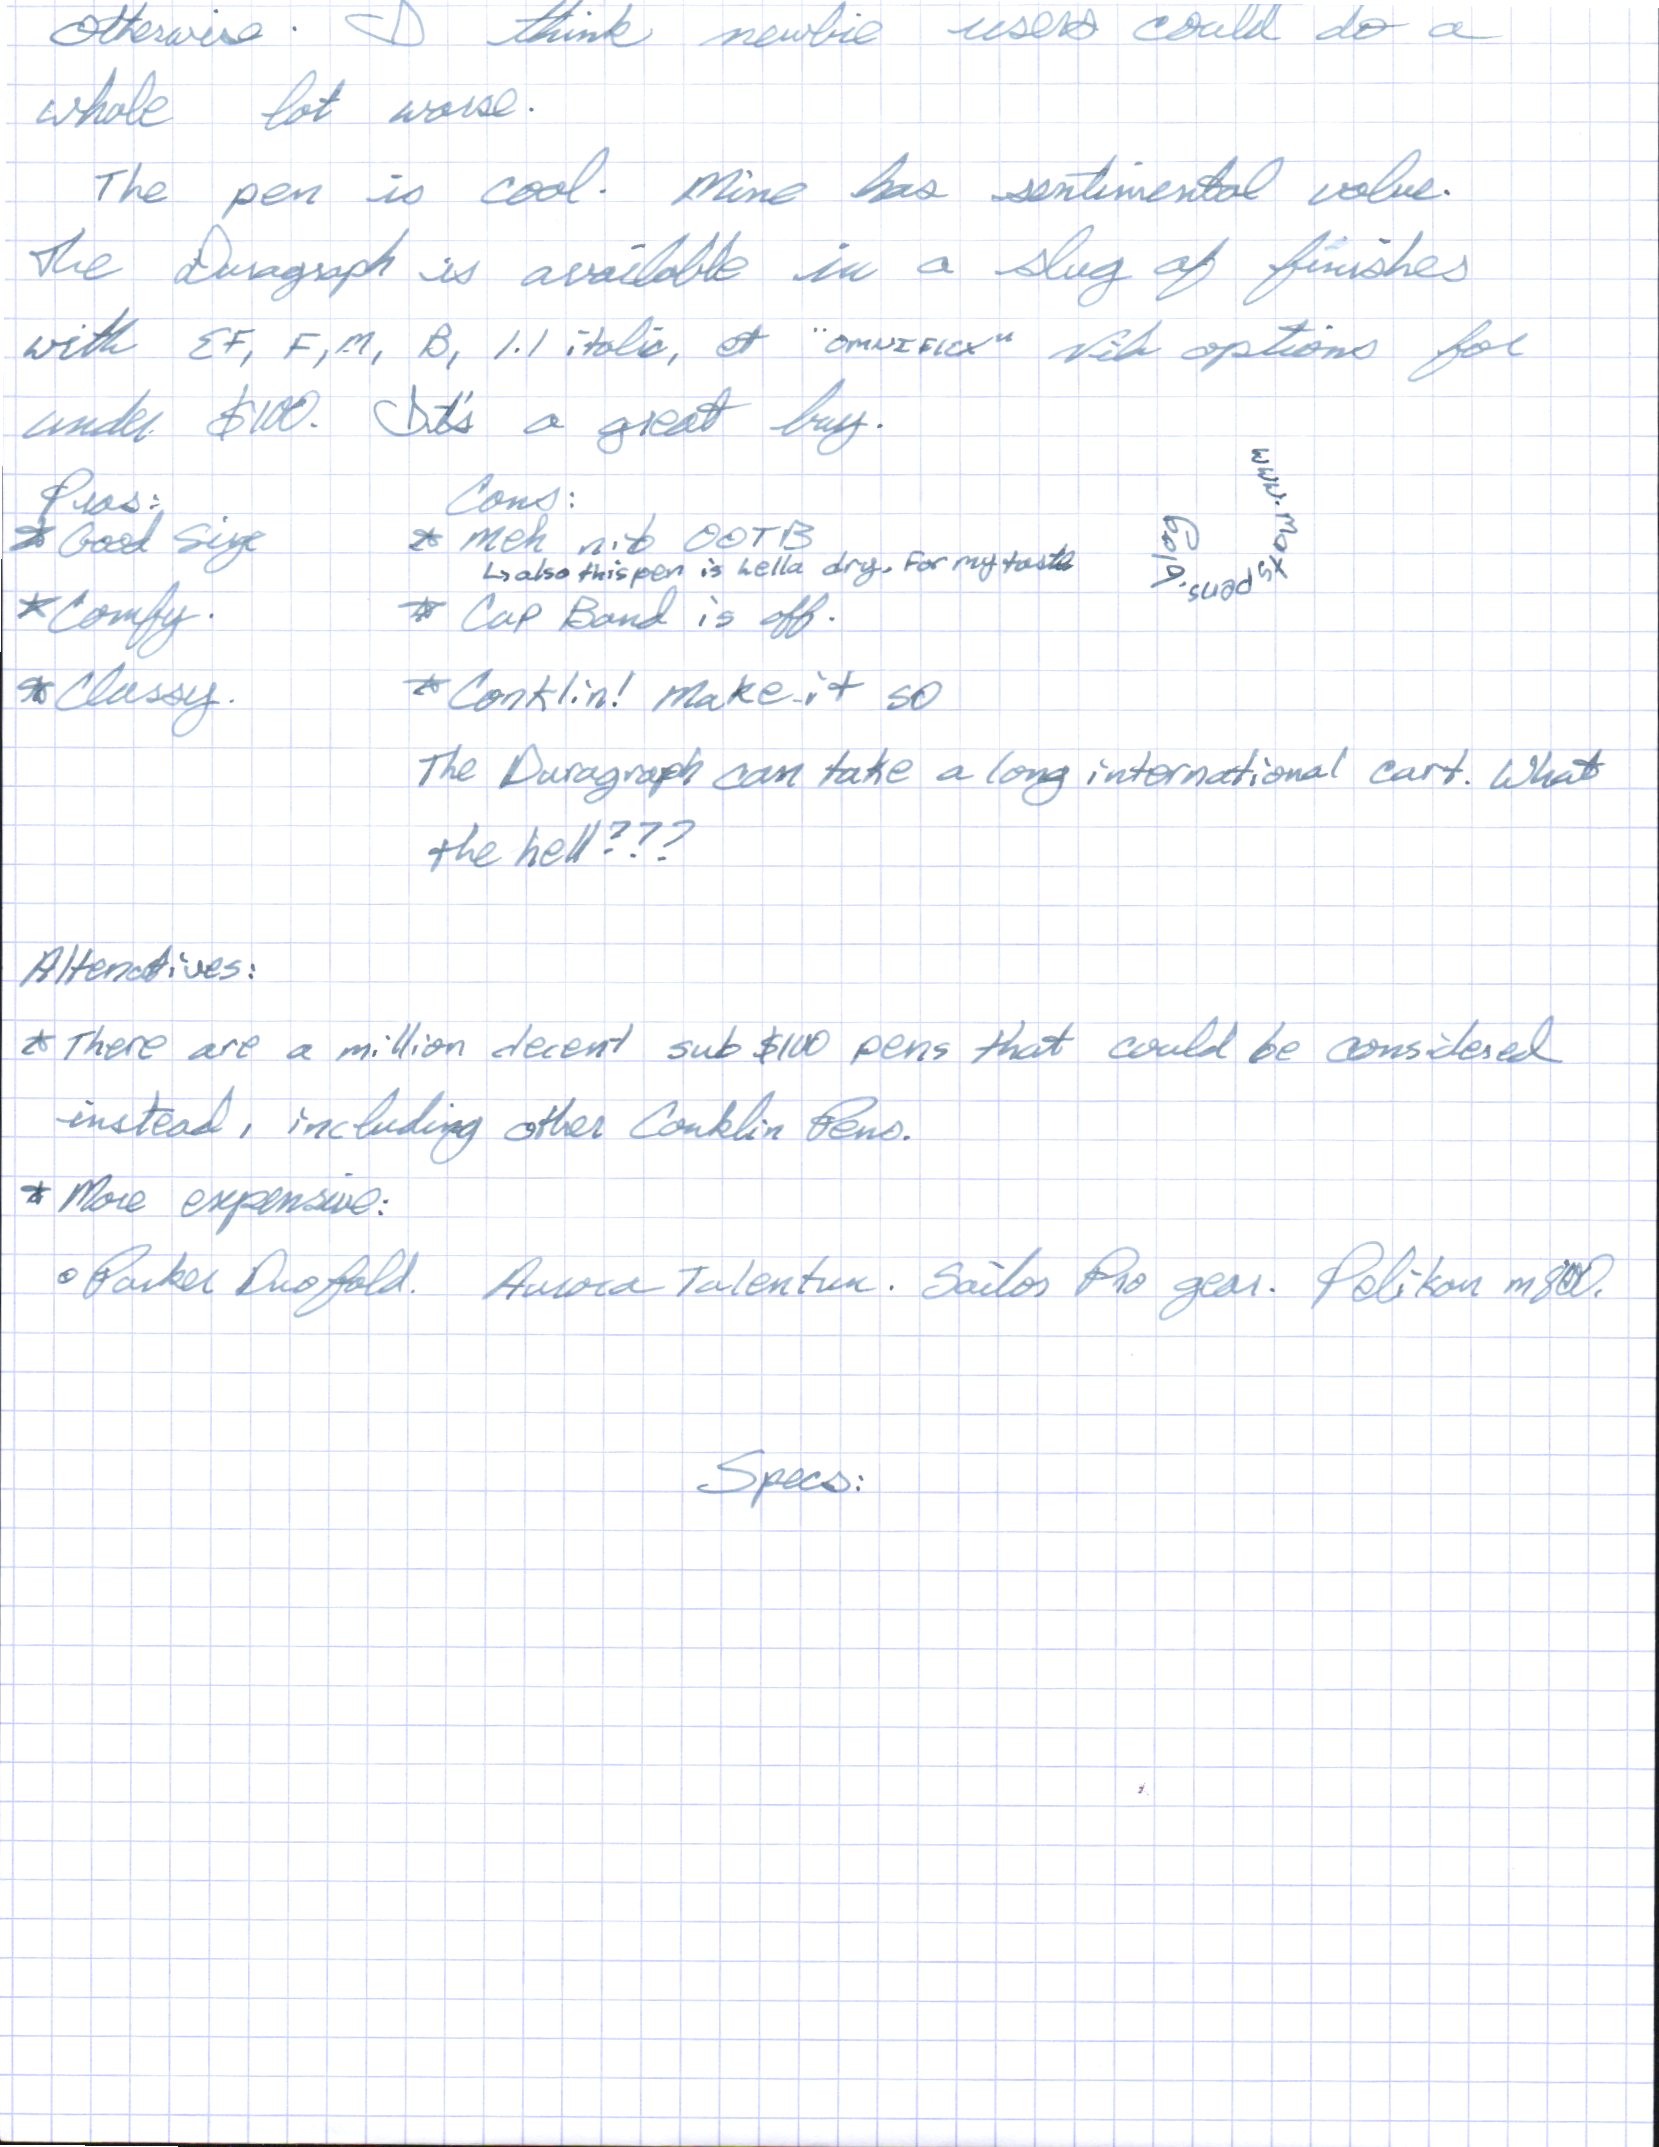 otherwise. I think newbie users could do a
whole lot worse.
The pen is cool. Mine has sentimental value.
The Duragraph is available in a slug of finishes
with EF, F, M, B, 1.1 italic, et "OMNIFLEX" nib options for
under $100. It's a great buy.
Pros:
* Good Size
* Comfy.
* Classy.
Cons:
* Meh nib OOTB
↳ also this pen is hella dry. For my taste
* Cap Band is off.
* Conklin! Make it so
The Duragraph can take a long international cart. What
the hell???
www.Matspens.
Gold
Alternatives:
* There are a million decent sub $100 pens that could be considered
instead, including other Conklin Pens.
* More expensive:
o Parker Duofold. Aurora Talentum. Sailor Pro gear. Pelikan m800.
Specs: